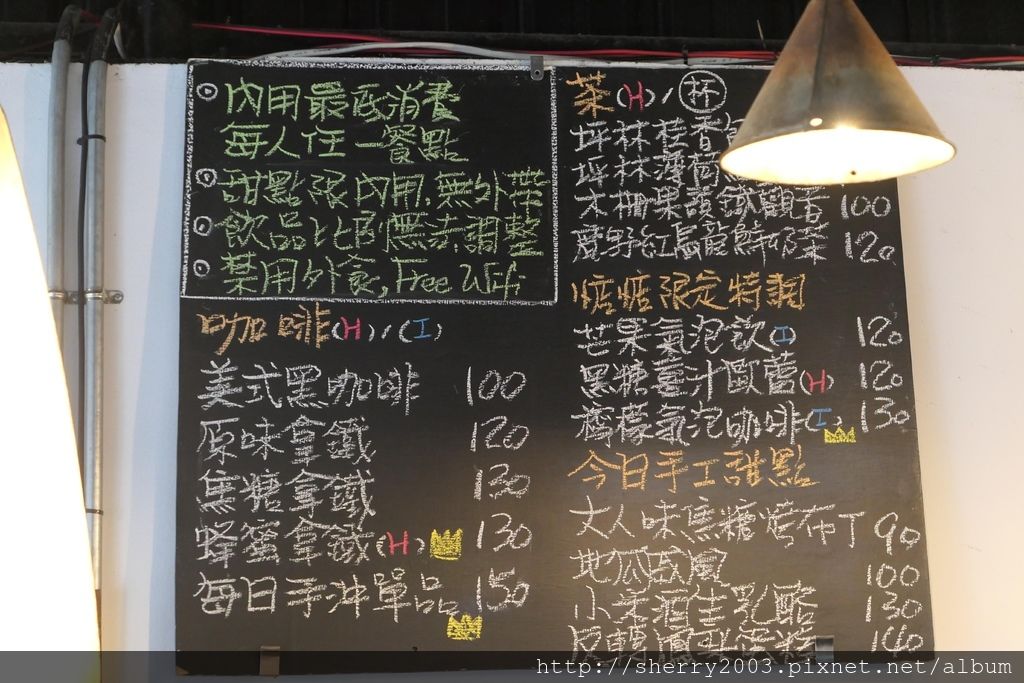 內用最低消費
每人任一餐點
甜點限內用,無外帶
飲品比例無法調整
禁用外食, Free Wifi
咖啡(H)/(I)
美式黑咖啡 100
原味拿鐵 120
焦糖拿鐵 130
蜂蜜拿鐵(H) 130
每日手沖單品 150
茶(H)/杯
坪林桂香
坪林薄荷
木柵果韻鐵觀音 100
蔗野紅烏龍鮮奶茶 120
糖糖限定特調
芒果氣泡飲(I) 120
黑糖薑汁歐蕾(H) 120
檸檬氣泡咖啡(I) 130
今日手工甜點
大人味焦糖烤布丁 90
地瓜戚風 100
小茉酒生乳酪 130
反轉 140
http://sherry2003.pixnet.net/album